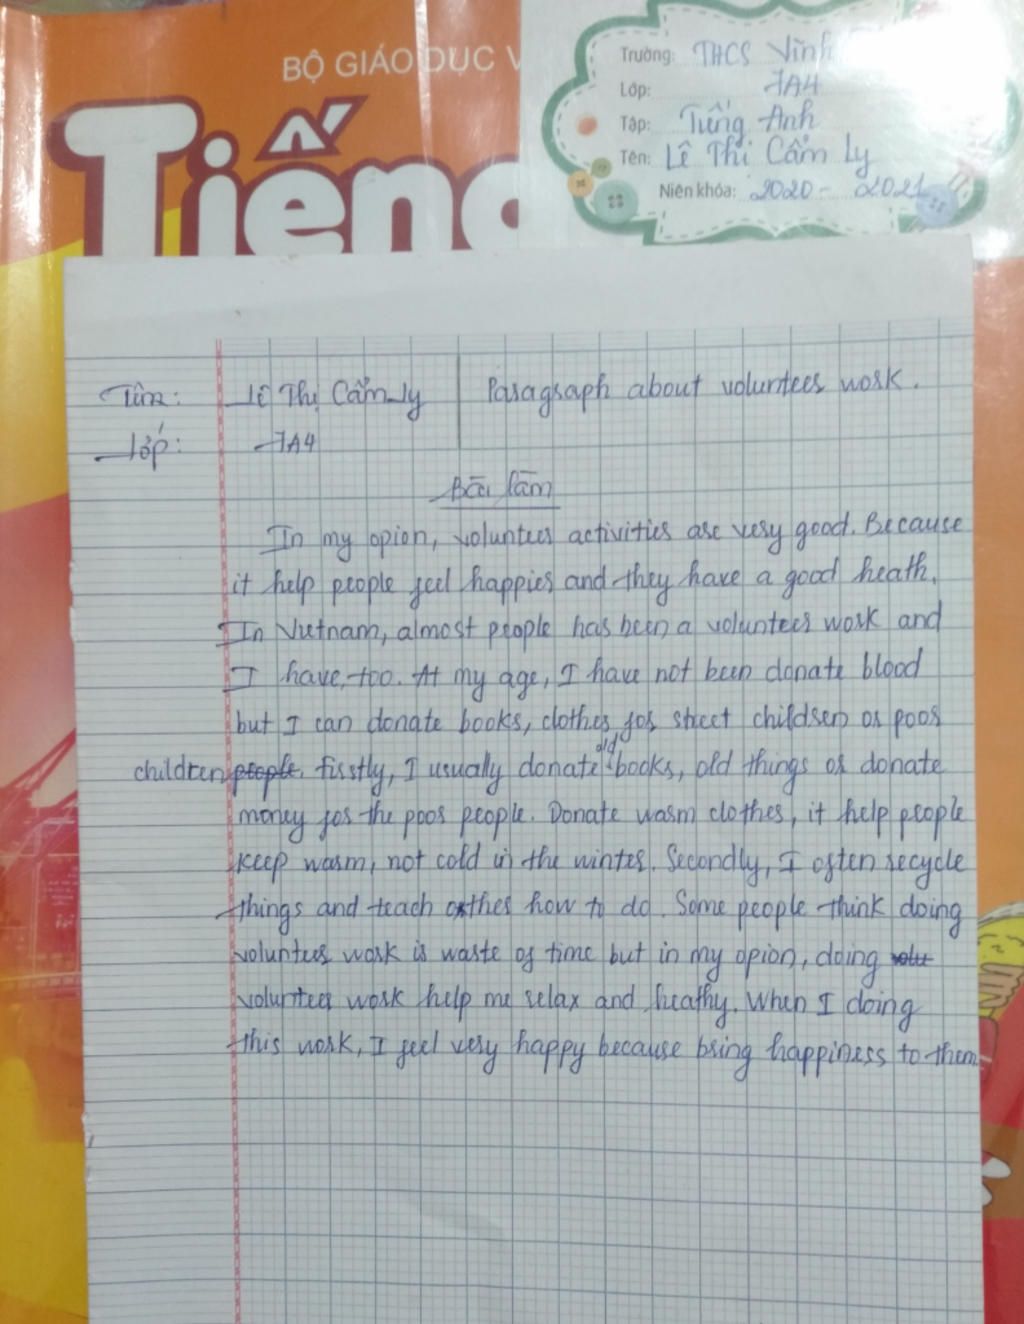 BỘ GIÁO DỤC V
Tiếng
Trường: THCS Vĩnh
Lớp: 7A4
Tập: Tiếng Anh
Tên: Lê Thị Cẩm Ly
Niên khóa: 2020 - 2021
Tên: Lê Thị Cẩm Ly
Lớp: 7A4
Paragraph about volunteer work.
Bài làm
In my opion, volunteer activities are very good. Because
it help people feel happier and they have a good heath.
In Vietnam, almost people has been a volunteer work and
I have, too. At my age, I have not been donate blood
but I can donate books, clothes, for street children or poor
children people. firstly, I usually donate old books, old things or donate
money for the poor people. Donate warm clothes, it help people
keep warm, not cold in the winter. Secondly, I often recycle
things and teach other how to do. Some people think doing
volunteer work is waste of time but in my opion, doing volu
volunteer work help me relax and heathy. When I doing
this work, I feel very happy because bring happiness to them